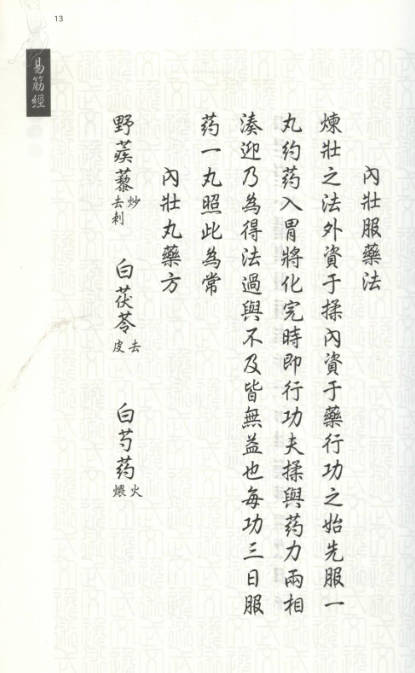 13
易筋經
內壯服藥法
煉壯之法外資于揉內資于藥行功之始先服一
丸約药入胃將化完時即行功夫揉與药力兩相
湊迎乃為得法過與不及皆無益也每功三日服
药一丸照此為常
內壯丸藥方
野蒺藜炒去刺 白茯苓去皮 白芍药火煨